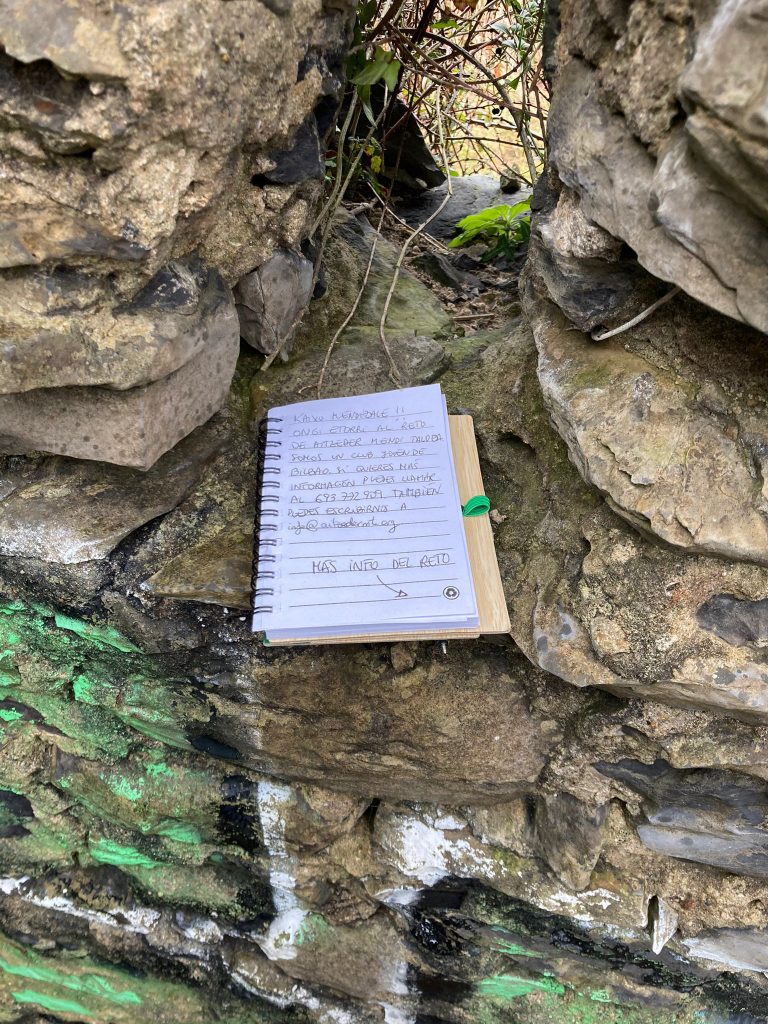 KAIXO MENDIZALE !!
ONGI ETORRI AL RETO
DE AITZEDER MENDI TALDEA
SOMOS UN CLUB JOVEN DE
BILBAO. SI QUIERES MAS
INFORMACIÓN PUEDES LLAMAR
AL 693 772 909. TAMBIEN
PUEDES ESCRIBIRNOS A
MAS INFO DEL RETO